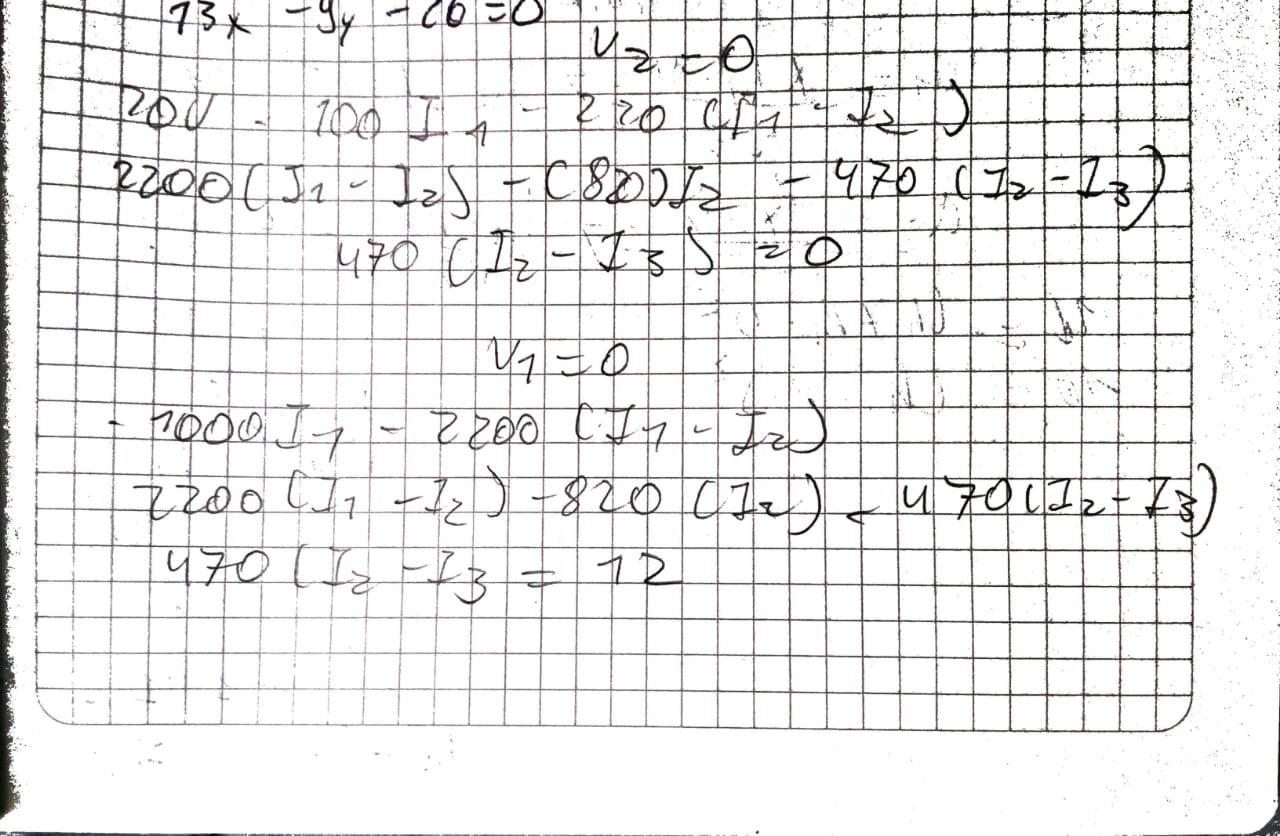 13x - 9y - 20 = 0
V2 = 0
20V - 100 I1 - 220 (I1 - I2)
2200 (I1 - I2) - (820) I2 - 470 (I2 - I3)
470 (I2 - I3) = 0
V1 = 0
- 1000 I1 - 2200 (I1 - I2)
2200 (I1 - I2) - 820 (I2) - 470 (I2 - I3)
470 (I2 - I3 = 12